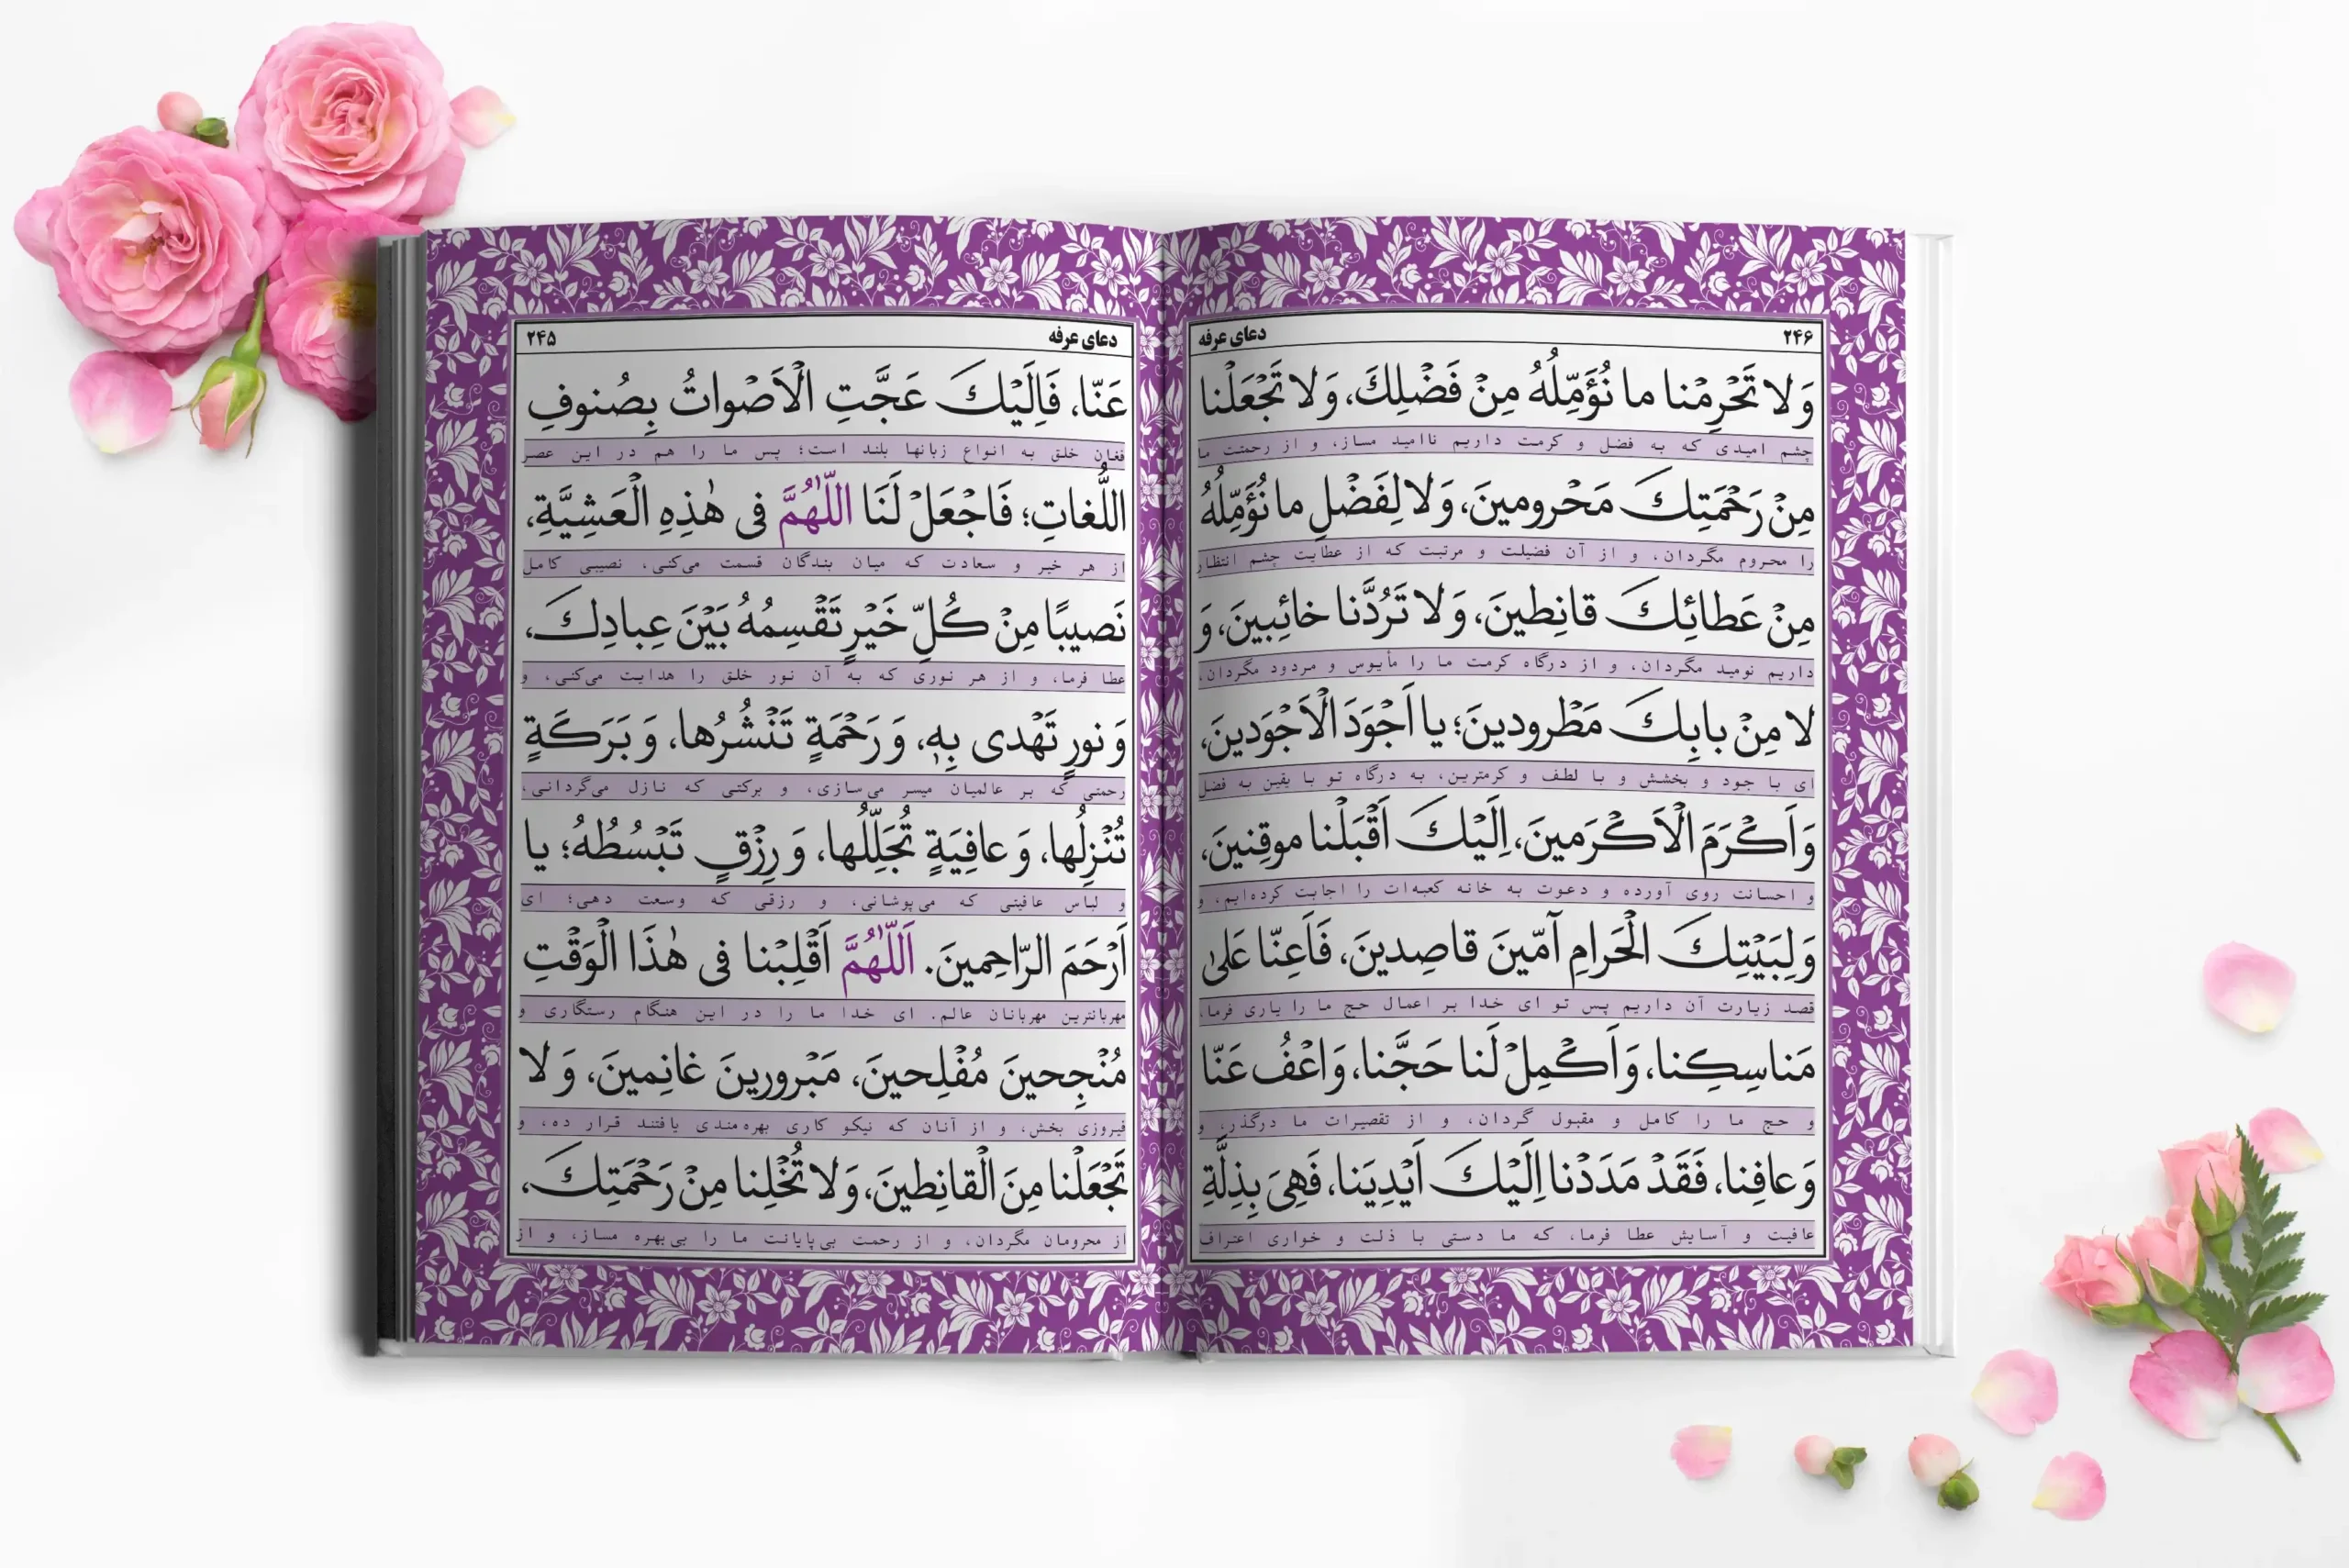 دعای عرفه ۲۴۵
عَنّا، فَاِلَیْكَ عَجَّتِ الْاَصْواتُ بِصُنوفِ
فغان خلق به انواع زبانها بلند است؛ پس ما را هم در این عصر
اللُّغاتِ؛ فَاجْعَلْ لَنَا اللّٰهُمَّ فی هٰذِهِ الْعَشِیَّةِ،
از هر خیر و سعادت که میان بندگان قسمت می‌کنی، نصیبی کامل
نَصیبًا مِنْ كُلِّ خَیْرٍ تَقْسِمُهُ بَیْنَ عِبادِكَ،
عطا فرما، و از هر نوری که به آن نور خلق را هدایت می‌کنی، و
وَ نورٍ تَهْدی بِهٖ، وَ رَحْمَةٍ تَنْشُرُها، وَ بَرَكَةٍ
رحمتی که بر عالمیان میسر می‌سازی، و برکتی که نازل می‌گردانی،
تُنْزِلُها، وَ عافِیَةٍ تُجَلِّلُها، وَ رِزْقٍ تَبْسُطُهُ؛ یا
و لباس عافیتی که می‌پوشانی، و رزقی که وسعت دهی؛ ای
اَرْحَمَ الرّاحِمینَ. اَللّٰهُمَّ اَقْلِبْنا فی هٰذَا الْوَقْتِ
مهربانترین مهربانان عالم. ای خدا ما را در این هنگام رستگاری و
مُنْجِحینَ مُفْلِحینَ، مَبْرورینَ غانِمینَ، وَ لا
فیروزی بخش، و از آنان که نیکو کاری بهره‌مندی یافتند قرار ده، و
تَجْعَلْنا مِنَ الْقانِطینَ، وَ لا تُخْلِنا مِنْ رَحْمَتِكَ،
از محرومان مگردان، و از رحمت بی‌پایانت ما را بی‌بهره مساز، و از
۲۴۶ دعای عرفه
وَ لا تَحْرِمْنا ما نُؤَمِّلُهُ مِنْ فَضْلِكَ، وَ لا تَجْعَلْنا
چشم امیدی که به فضل و کرمت داریم ناامید مساز، و از رحمتت ما
مِنْ رَحْمَتِكَ مَحْرومینَ، وَ لا لِفَضْلِ ما نُؤَمِّلُهُ
را محروم مگردان، و از آن فضیلت و مرتبت که از عطایت چشم انتظار
مِنْ عَطائِكَ قانِطینَ، وَ لا تَرُدَّنا خائِبینَ، وَ
داریم نومید مگردان، و از درگاه کرمت ما را مأیوس و مردود مگردان،
لا مِنْ بابِكَ مَطْرودینَ؛ یا اَجْوَدَ الْاَجْوَدینَ،
ای با جود و بخشش و با لطف و کرمترین، به درگاه تو با یقین به فضل
وَ اَكْرَمَ الْاَكْرَمینَ، اِلَیْكَ اَقْبَلْنا موقِنینَ،
و احسانت روی آورده و دعوت به خانه کعبه‌ات را اجابت کرده‌ایم، و
وَ لِبَیْتِكَ الْحَرامِ آمّینَ قاصِدینَ، فَاَعِنّا عَلیٰ
قصد زیارت آن داریم پس تو ای خدا بر اعمال حج ما را یاری فرما،
مَناسِكِنا، وَ اَكْمِلْ لَنا حَجَّنا، وَ اعْفُ عَنّا
و حج ما را کامل و مقبول گردان، و از تقصیرات ما درگذر، و
وَ عافِنا، فَقَدْ مَدَدْنا اِلَیْكَ اَیْدِیَنا، فَهِیَ بِذِلَّةِ
عافیت و آسایش عطا فرما، که ما دستی با ذلت و خواری اعتراف